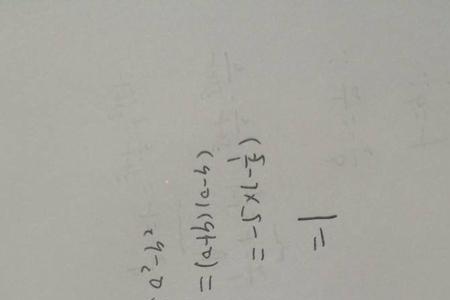 a²-b²
=(a+b)(a-b)
=-5×(-1/5)
=1